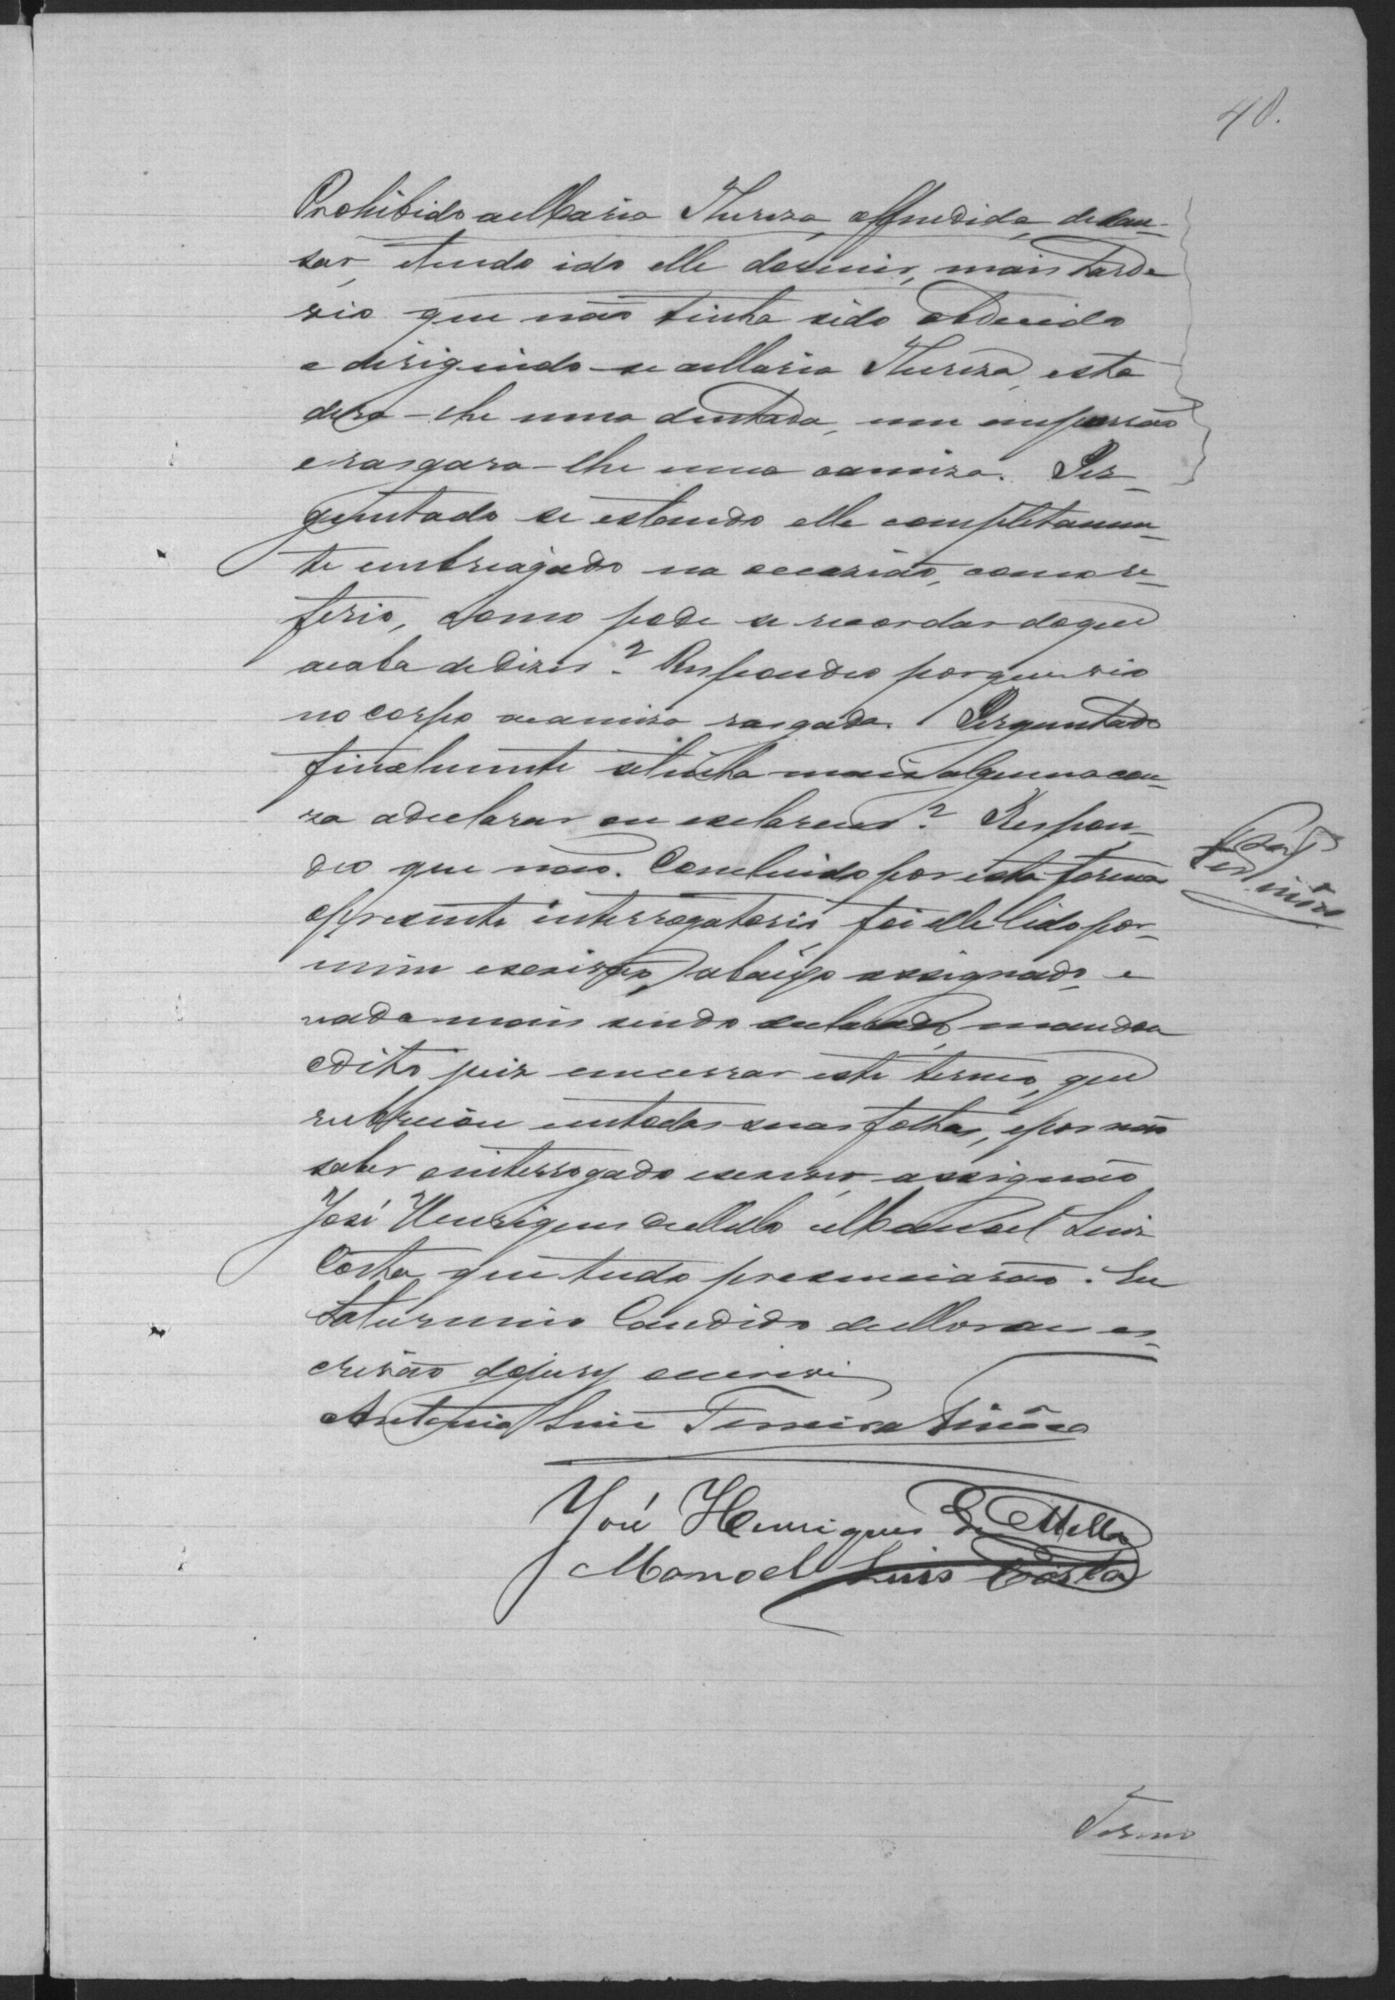 40.
Prohibido a Maria Thereza, offendida, de dan-
sar, e tendo ido elle dormir, mais tarde
vio que não tinha sido obdecido
e dirigindo-se a Maria Thereza, esta
dera-lhe uma dentada, um empurrão
e rasgara-lhe uma camiza. Per-
guntado se estando elle completamen-
te embriagado na occazião, como re-
ferio, como pode se recordar do que
acaba de dizer? Respondeo porque vio
no corpo a camiza rasgada. Perguntado
finalmente se tinha mais alguma cou-
za a declarar ou esclarecer? Respon-
deo que não. Concluido por esta forma
o presente interrogatorio foi elle lido por
mim escrivão, abaixo assignado, e
nada mais sendo declarado, mandou
o dito juiz encerrar este termo, que
rubricou em todas suas folhas, e por não
saber o interrogado escrever, assignão
José Henriques de Mello e Manoel Luiz
Costa que tudo presenciarão. Eu
Saturnino Candido de Moraes es-
crivão do jury escrevi
Antonio Luiz Ferreira Tinôco
José Henriques de Mello
Manoel Luis Costa
Termo